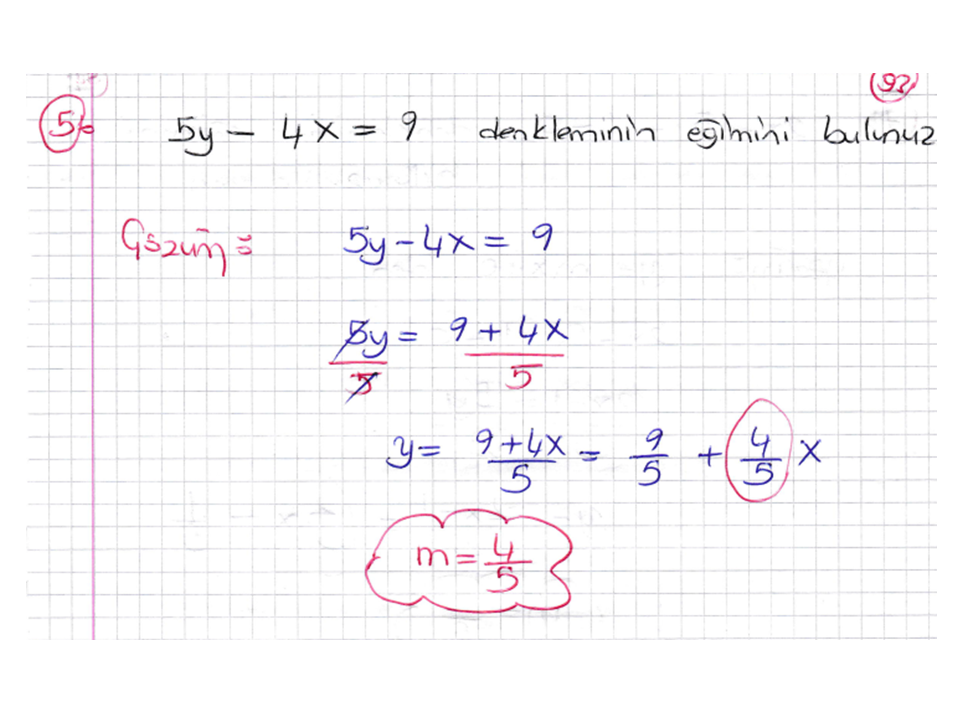 93
5. 5y - 4x = 9 denkleminin eğimini bulunuz
Çözüm: 5y - 4x = 9
5y/5 = (9 + 4x)/5
y = (9 + 4x)/5 = 9/5 + 4/5 x
m = 4/5